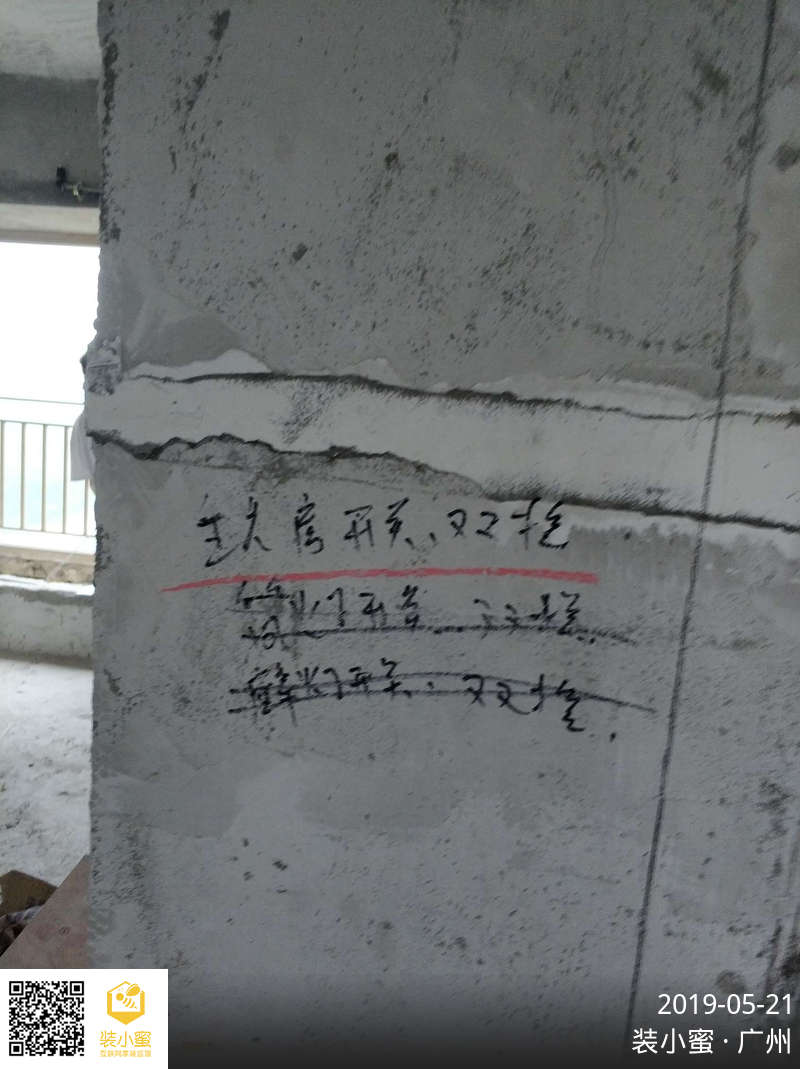 主人房开关:双控
开关:双控
开关:双控.
2019-05-21
装小蜜·广州
装小蜜
互联网家装监理